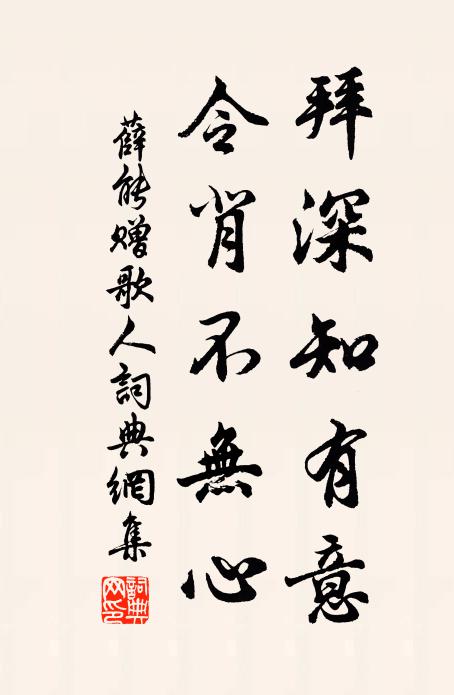 拜深知有意
令背不無心
薛能贈歌人詞典網集
詞典網印